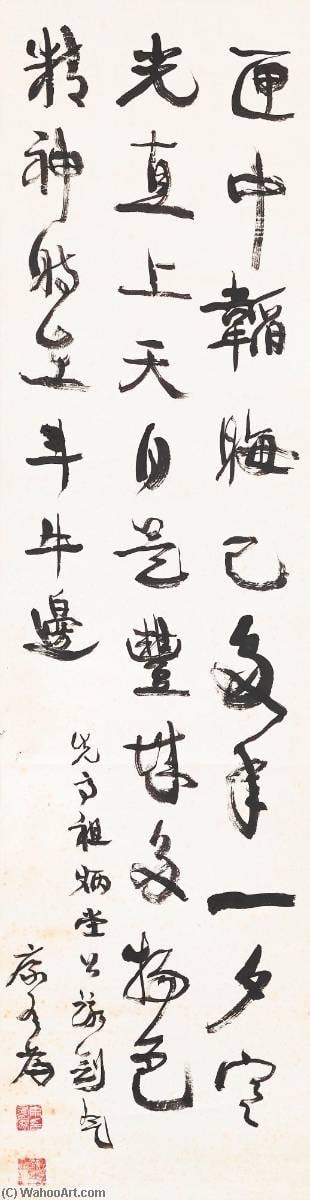 匣中韜晦已多年一夕寒
光直上天自是豐城多物色
精神時在斗牛邊
先高祖炳堂公劍氣
康有為
© WahooArt.com